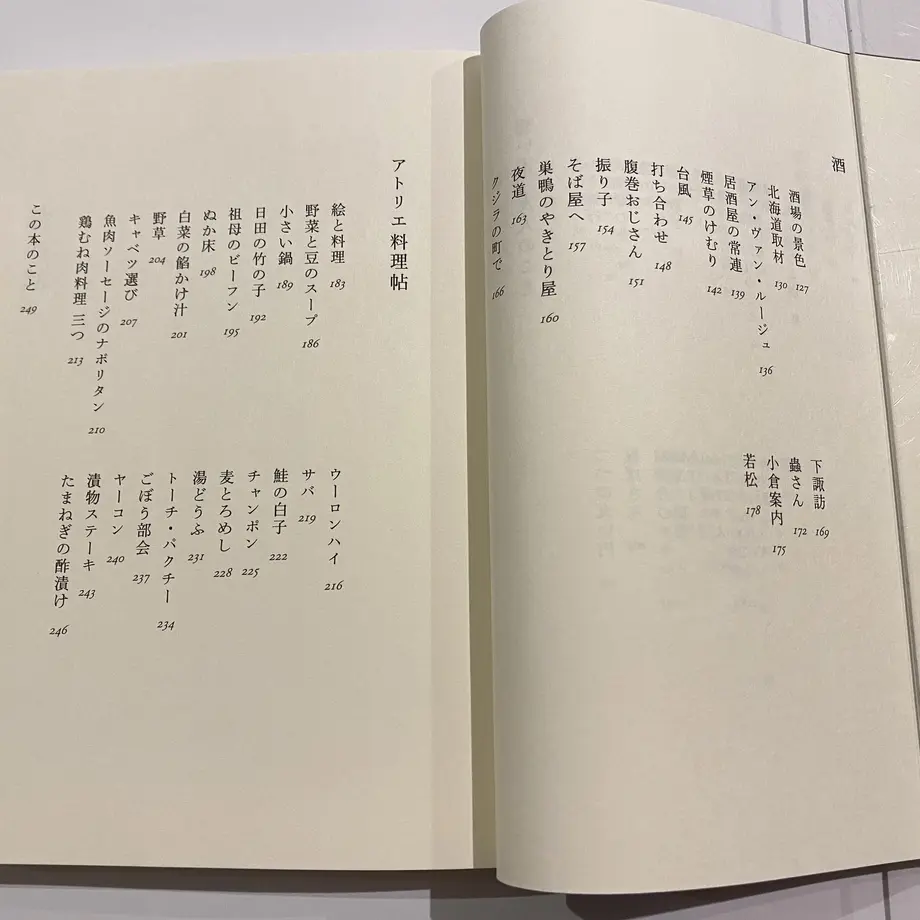 酒
酒場の景色 127
北海道取材 130
アン・ヴァン・ルージュ 136
居酒屋の常連 139
煙草のけむり 142
台風 145
打ち合わせ 148
腹巻おじさん 151
振り子 154
そば屋へ 157
巣鴨のやきとり屋 160
夜道 163
クジラの町で 166
下諏訪 169
蟲さん 172
小倉案内 175
若松 178
アトリエ料理帖
絵と料理 183
野菜と豆のスープ 186
小さい鍋 189
日田の竹の子 192
祖母のビーフン 195
ぬか床 198
白菜の餡かけ汁 201
野草 204
キャベツ選び 207
魚肉ソーセージのナポリタン 210
鶏むね肉料理 三つ 213
ウーロンハイ 216
サバ 219
鮭の白子 222
チャンポン 225
麦とろめし 228
湯どうふ 231
トーチ・パクチー 234
ごぼう部会 237
ヤーコン 240
漬物ステーキ 243
たまねぎの酢漬け 246
この本のこと 249